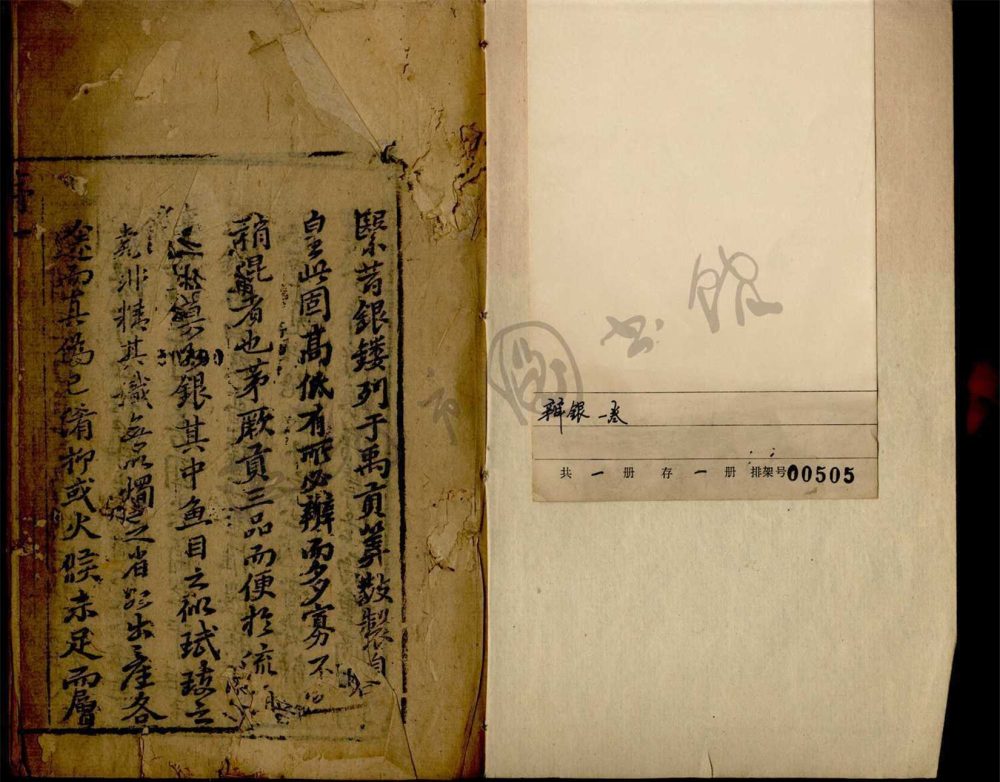 辨銀 一卷
共 一 册 存 一 册 排架号 00505
繄昔銀鏤列于禹貢算數製自
皇此固高低有所必辨而多寡不
稍混者也苐厥貢三品而便於流
銀其中魚目之砒珷玞之
非精其識無以燭之省路出產各
途而真偽已淆抑或火候未足而屬